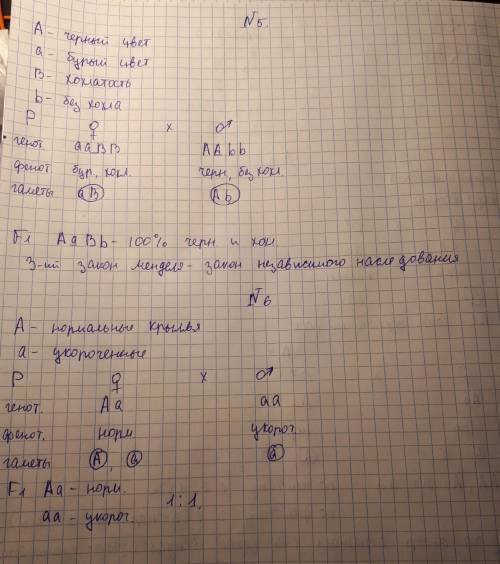 N5.
A - черный цвет
a - бурый цвет
B - хохлатость
b - без хохла
P ♀ x ♂
генот. aaBB AAbb
фенот. бур., хохл. черн, без хохл.
гаметы aB Ab
F1 AaBb - 100% черн и хохл.
3-ий закон Менделя - закон независимого наследования
N6
A - нормальные крылья
a - укороченные
P ♀ x ♂
генот. Aa aa
фенот. норм. укороч.
гаметы A, a a
F1 Aa - норм.
1:1.
aa - укороч.